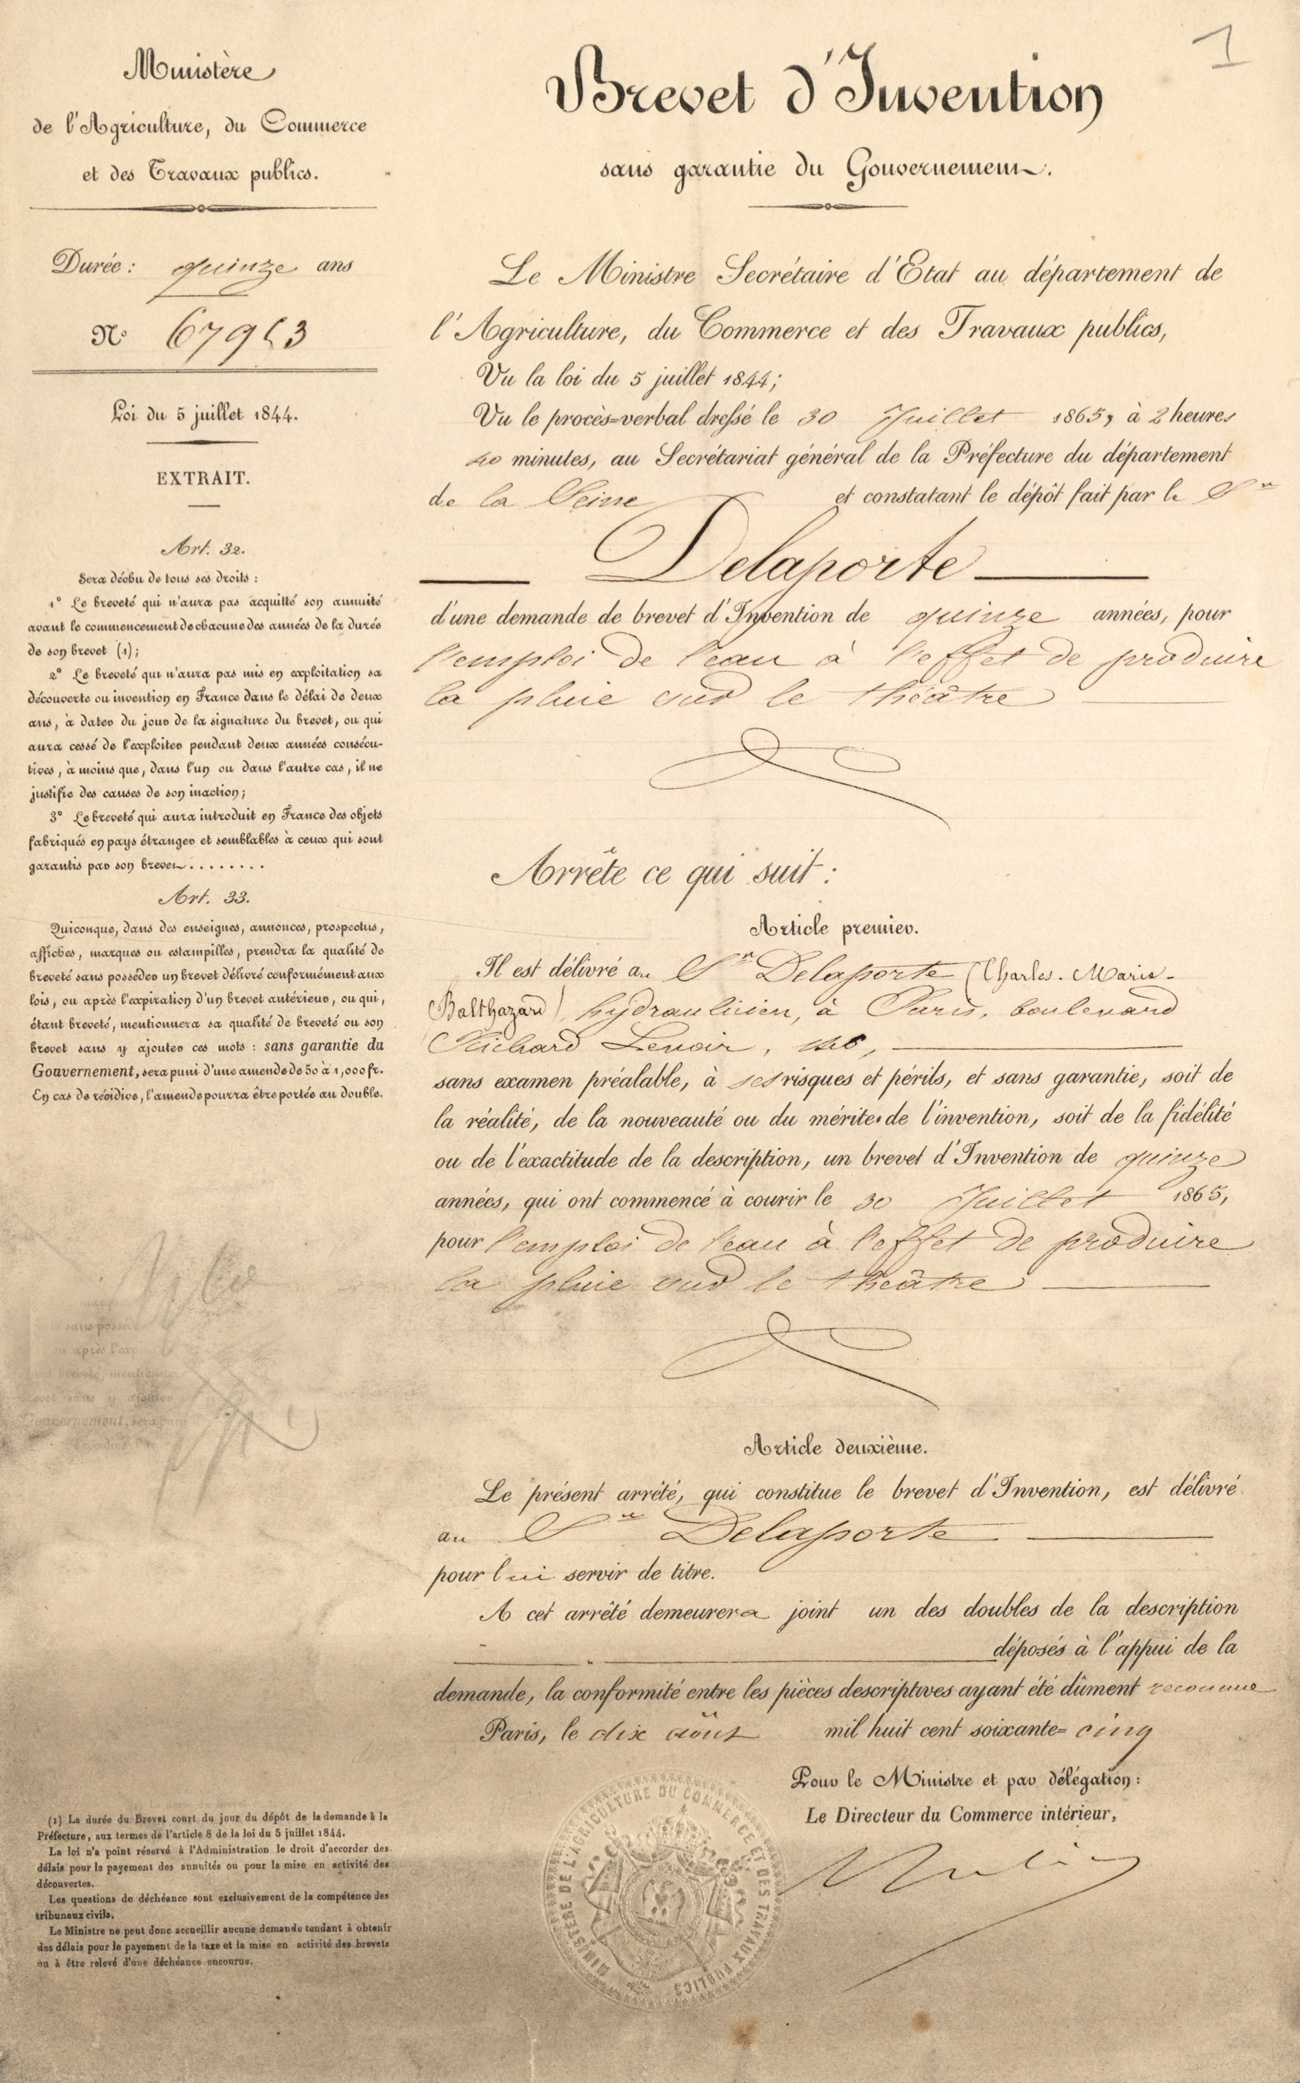 1
Ministère
de l'Agriculture, du Commerce
et des Travaux publics.
Durée : quinze ans
N° 67953
Loi du 5 juillet 1844.
EXTRAIT.
Art. 32.
Sera déchu de tous ses droits :
1° Le breveté qui n'aura pas acquitté son annuité
avant le commencement de chacune des années de la durée
de son brevet (1);
2° Le breveté qui n'aura pas mis en exploitation sa
découverte ou invention en France dans le délai de deux
ans, à dater du jour de la signature du brevet, ou qui
aura cessé de l'exploiter pendant deux années consécu-
tives, à moins que, dans l'un ou dans l'autre cas, il ne
justifie des causes de son inaction;
3° Le breveté qui aura introduit en France des objets
fabriqués en pays étranger et semblables à ceux qui sont
garantis par son brevet........
Art. 33.
Quiconque, dans des enseignes, annonces, prospectus,
affiches, marques ou estampilles, prendra la qualité de
breveté sans posséder un brevet délivré conformément aux
lois, ou après l'expiration d'un brevet antérieur, ou qui,
étant breveté, mentionnera sa qualité de breveté ou son
brevet sans y ajouter ces mots : sans garantie du
Gouvernement, sera puni d'une amende de 50 à 1,000 fr.
En cas de récidive, l'amende pourra être portée au double.
(1) La durée du Brevet court du jour du dépôt de la demande à la
Préfecture, aux termes de l'article 8 de la loi du 5 juillet 1844.
La loi n'a point réservé à l'Administration le droit d'accorder des
délais pour le payement des annuités ou pour la mise en activité des
découvertes.
Les questions de déchéance sont exclusivement de la compétence des
tribunaux civils.
Le Ministre ne peut donc accueillir aucune demande tendant à obtenir
des délais pour le payement de la taxe et la mise en activité des brevets
ou à être relevé d'une déchéance encourue.
Brevet d'Invention
sans garantie du Gouvernement.
Le Ministre Secrétaire d'Etat au département de
l'Agriculture, du Commerce et des Travaux publics,
Vu la loi du 5 juillet 1844;
Vu le procès-verbal dressé le 30 Juillet 1865, à 2 heures
40 minutes, au Secrétariat général de la Préfecture du département
de la Seine et constatant le dépôt fait par le Sr
Delaporte
d'une demande de brevet d'Invention de quinze années, pour
l'emploi de l'eau à l'effet de produire
la pluie sur le théâtre
Arrête ce qui suit :
Article premier.
Il est délivré au Sr Delaporte (Charles-Marie-
Balthazard) hydraulicien, à Paris, boulevard
Richard Lenoir, 146,
sans examen préalable, à ses risques et périls, et sans garantie, soit de
la réalité, de la nouveauté ou du mérite de l'invention, soit de la fidélité
ou de l'exactitude de la description, un brevet d'Invention de quinze
années, qui ont commencé à courir le 30 Juillet 1865,
pour l'emploi de l'eau à l'effet de produire
la pluie sur le théâtre
Article deuxième.
Le présent arrêté, qui constitue le brevet d'Invention, est délivré
au Sr Delaporte
pour lui servir de titre.
A cet arrêté demeurera joint un des doubles de la description
déposés à l'appui de la
demande, la conformité entre les pièces descriptives ayant été dûment reconnue
Paris, le dix août mil huit cent soixante-cinq
Pour le Ministre et par délégation :
Le Directeur du Commerce intérieur,
MINISTÈRE DE L'AGRICULTURE DU COMMERCE ET DES TRAVAUX PUBLICS